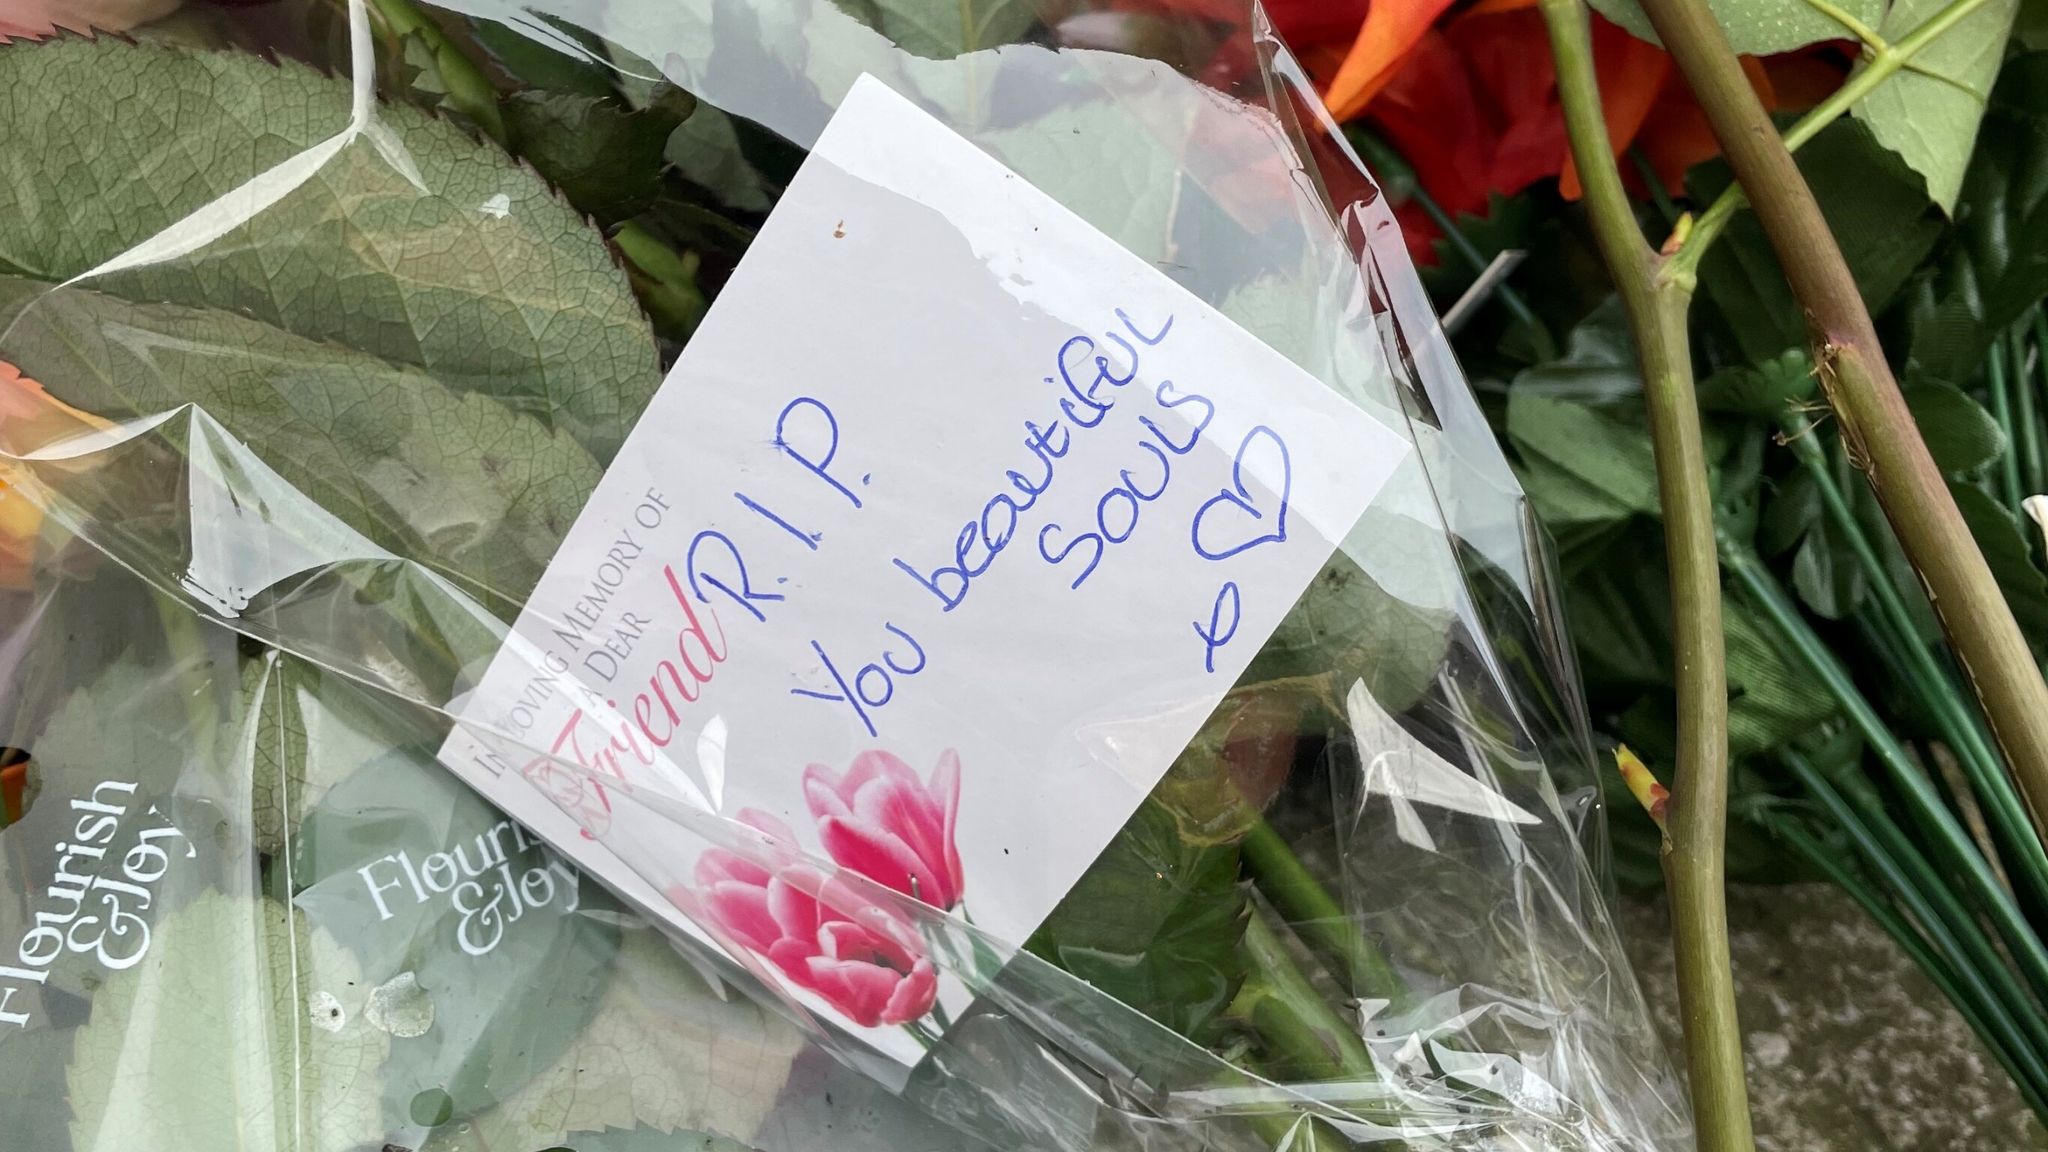 IN LOVING MEMORY OF
A DEAR
Friend
R.I.P.
You beautiful
souls
x
Flourish
&Joy
Flourish
&Joy